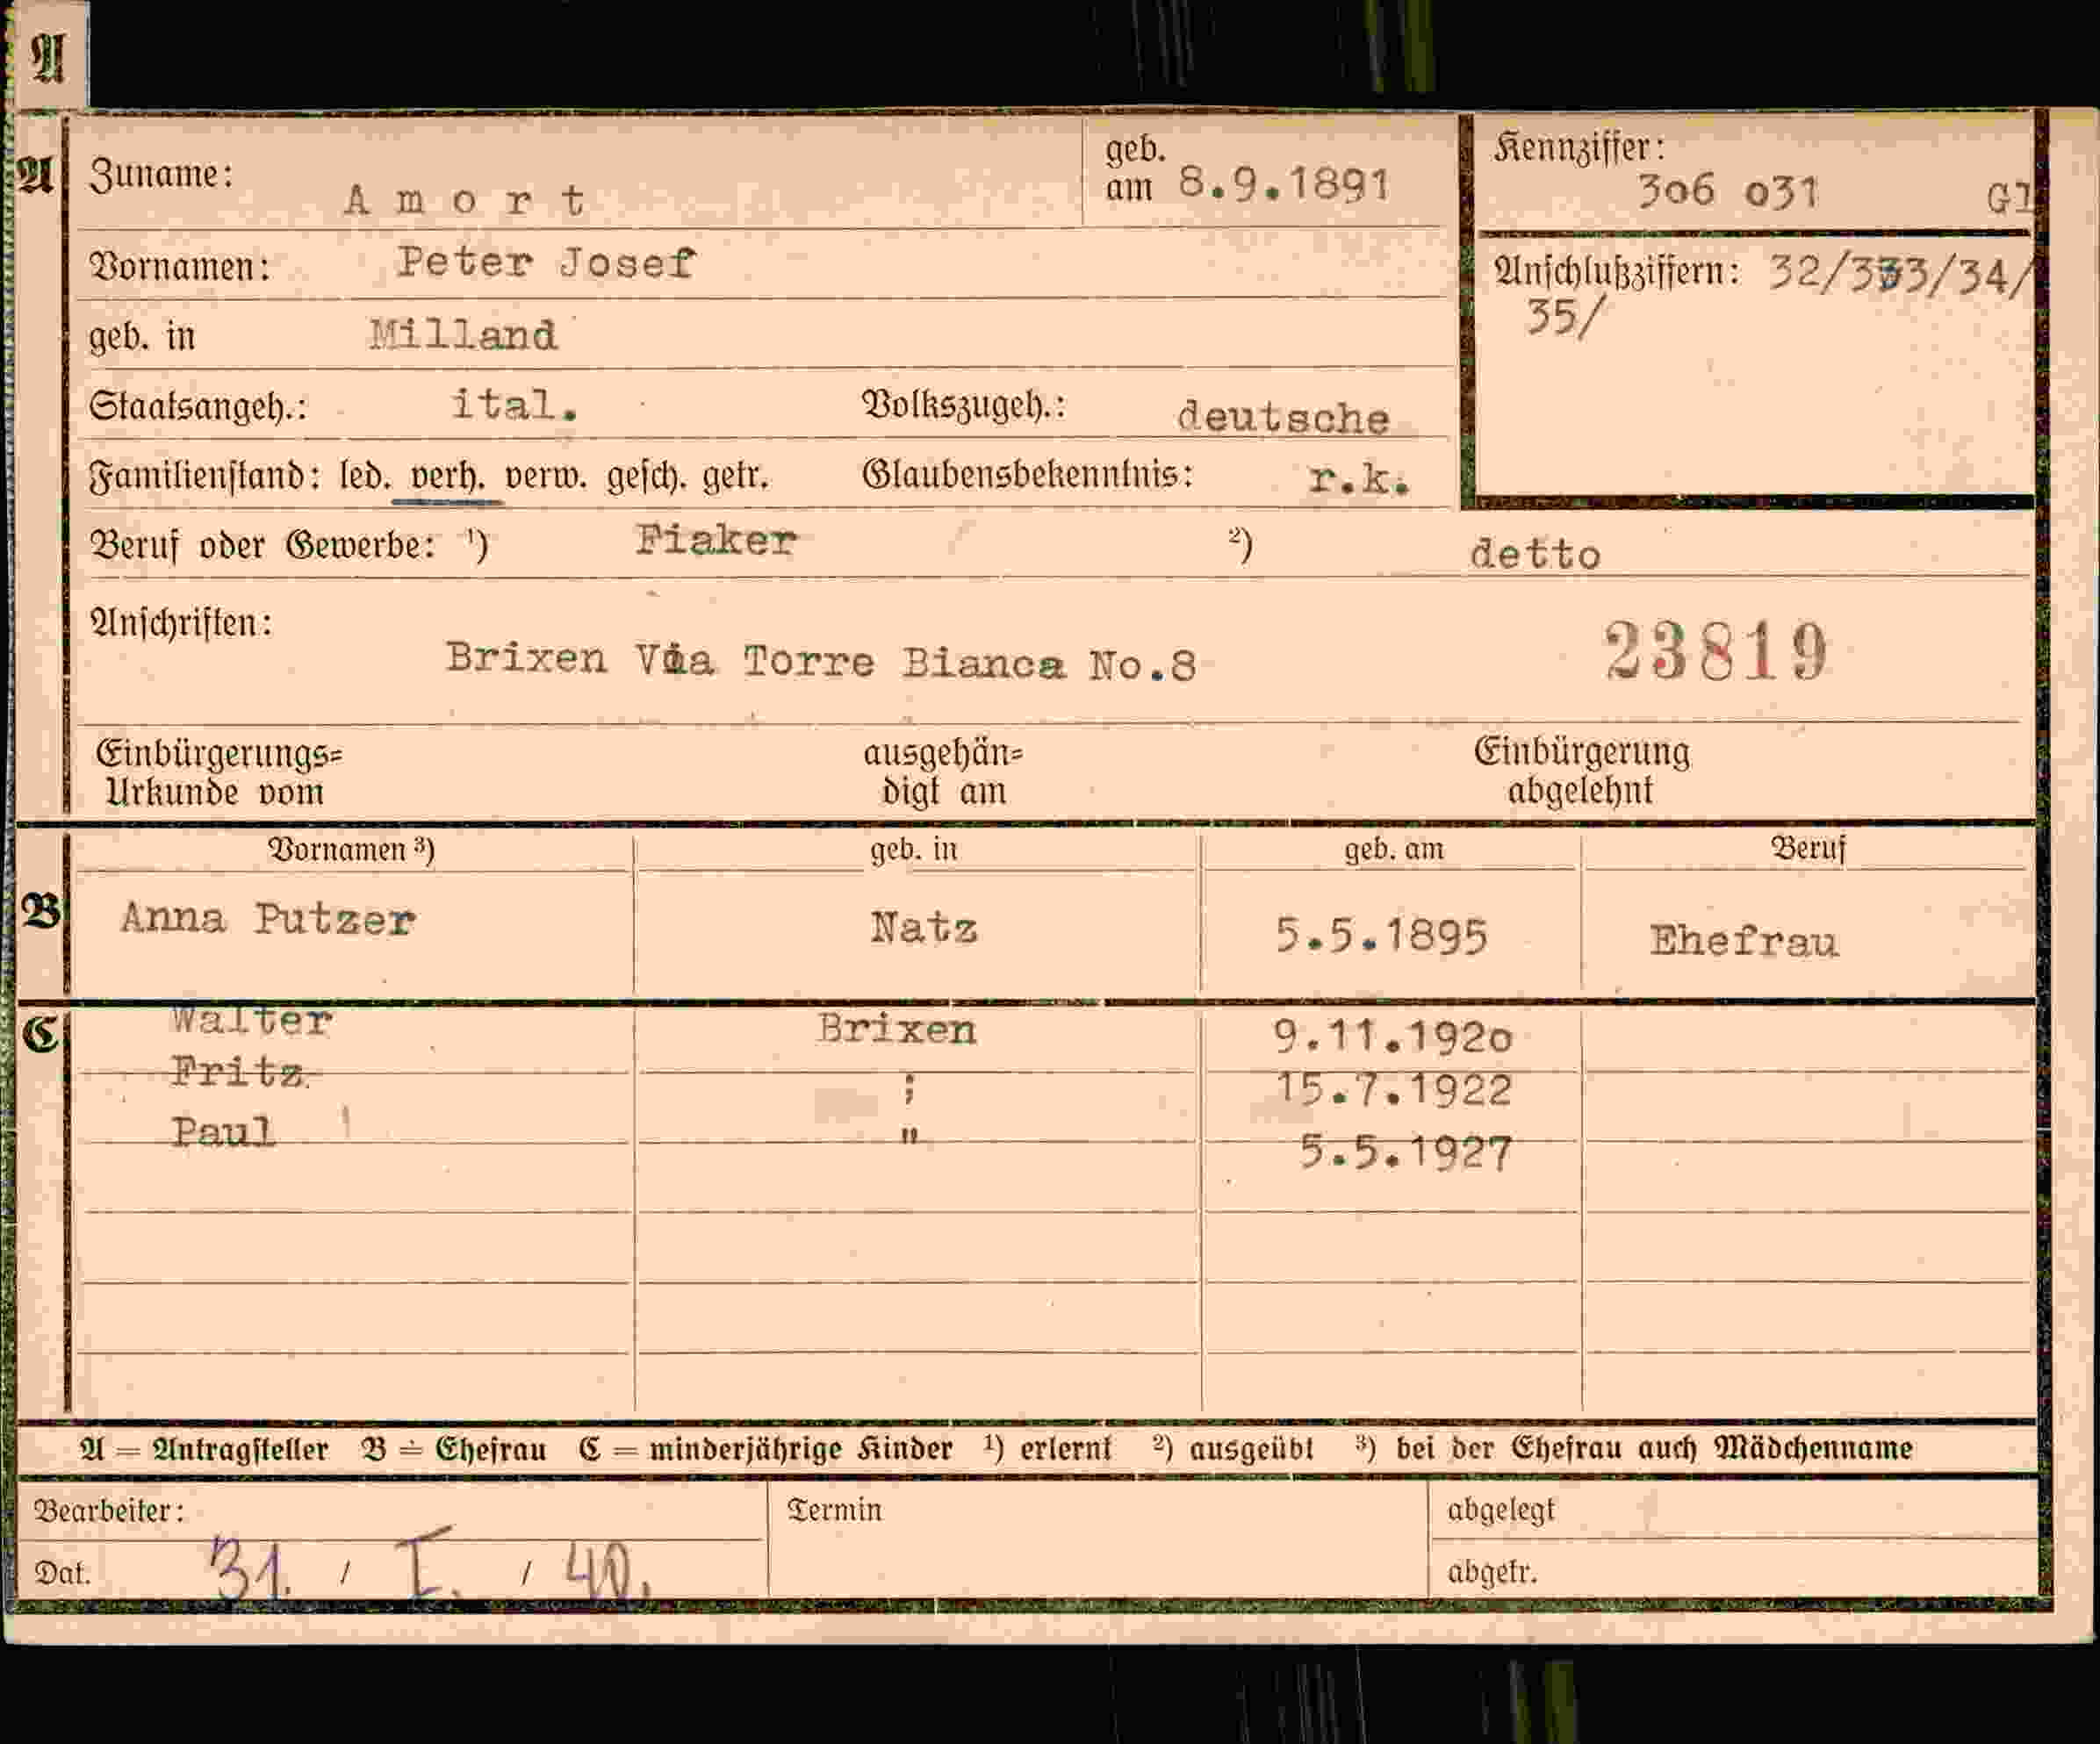 A
A
Zuname: Amort
geb. am 8.9.1891
Kennziffer: 306 031 Gl
Vornamen: Peter Josef
Anschlußziffern: 32/33/34/
35/
geb. in Milland
Staatsangeh.: ital. Volkszugeh.: deutsche
Familienstand: led. verh. verw. gesch. getr. Glaubensbekenntnis: r.k.
Beruf oder Gewerbe: ¹) Fiaker ²) detto
Anschriften: Brixen Via Torre Bianca No.8
23819
Einbürgerungs=
Urkunde vom
ausgehän=
digt am
Einbürgerung
abgelehnt
Vornamen ³) geb. in geb. am Beruf
B Anna Putzer Natz 5.5.1895 Ehefrau
C Walter Brixen 9.11.1920
Fritz ; 15.7.1922
Paul " 5.5.1927
A = Antragsteller B = Ehefrau C = minderjährige Kinder ¹) erlernt ²) ausgeübt ³) bei der Ehefrau auch Mädchenname
Bearbeiter: Termin abgelegt
Dat. 31. / I. / 40. abgetr.